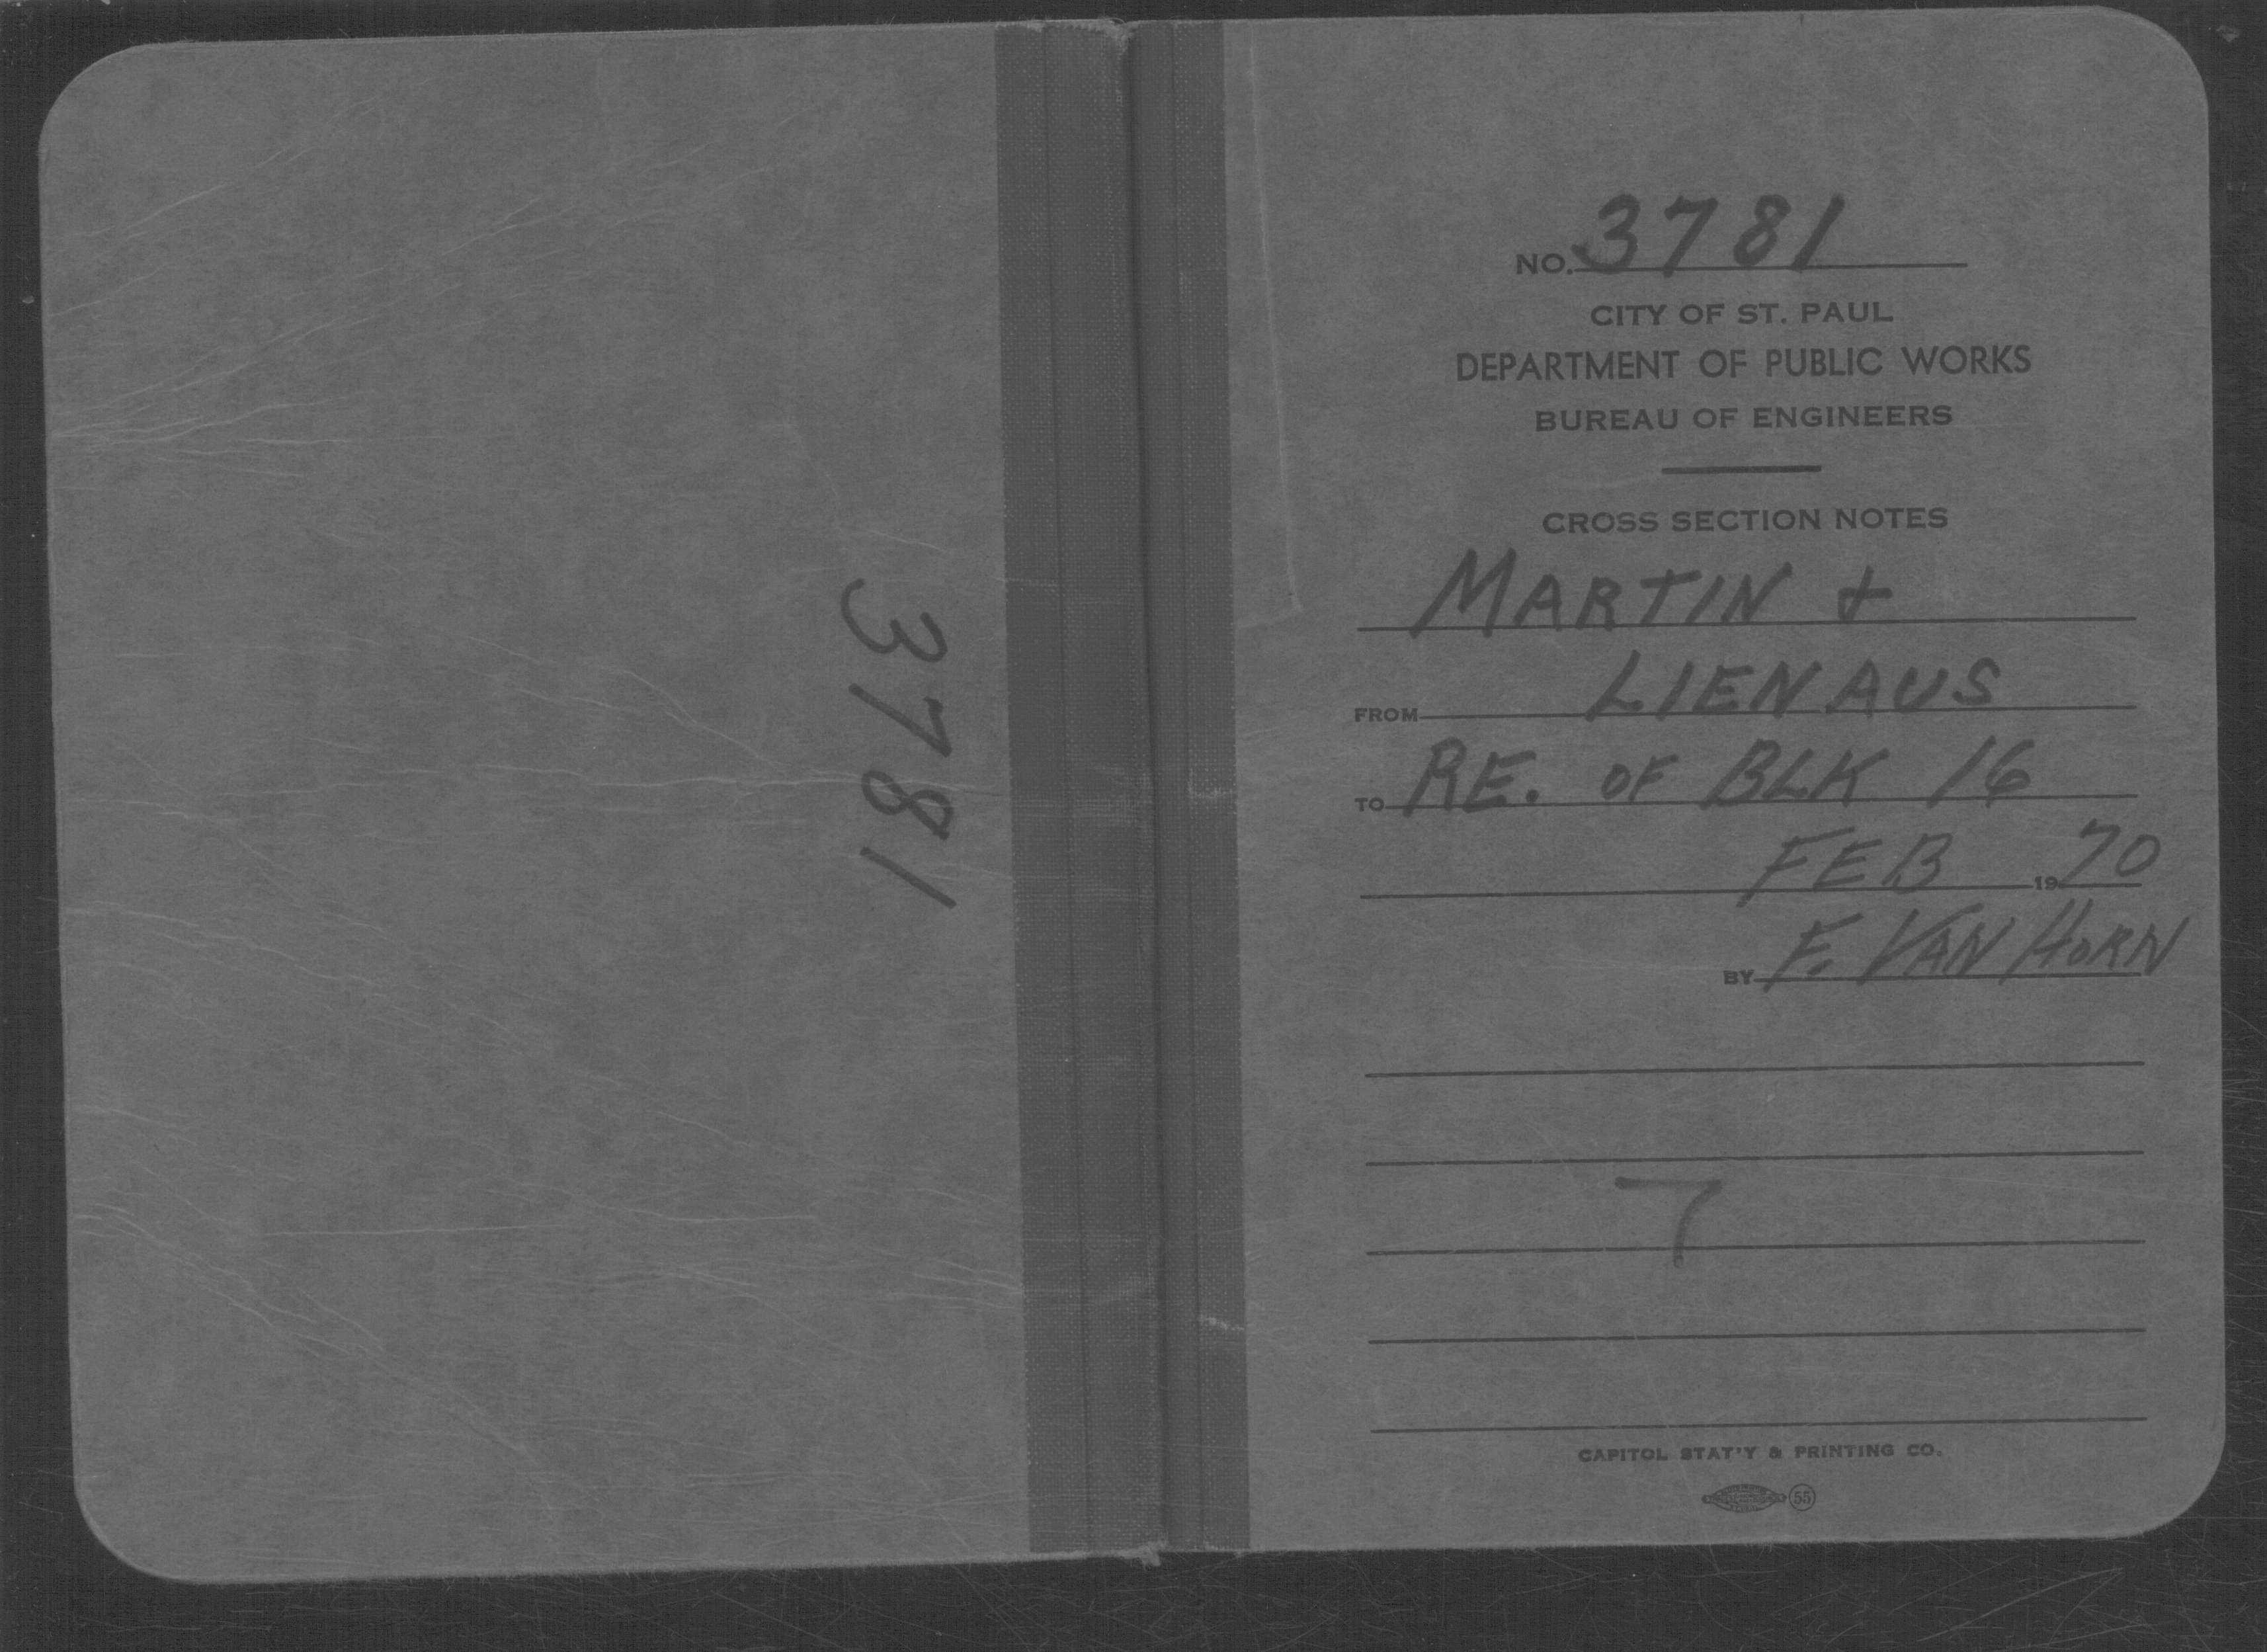 3781
NO. 3781
CITY OF ST. PAUL
DEPARTMENT OF PUBLIC WORKS
BUREAU OF ENGINEERS
CROSS SECTION NOTES
MARTIN +
FROM LIENAUS
TO RE. OF BLK 16
FEB 1970
BY F. VAN HORN
7
CAPITOL STAT'Y & PRINTING CO.
55